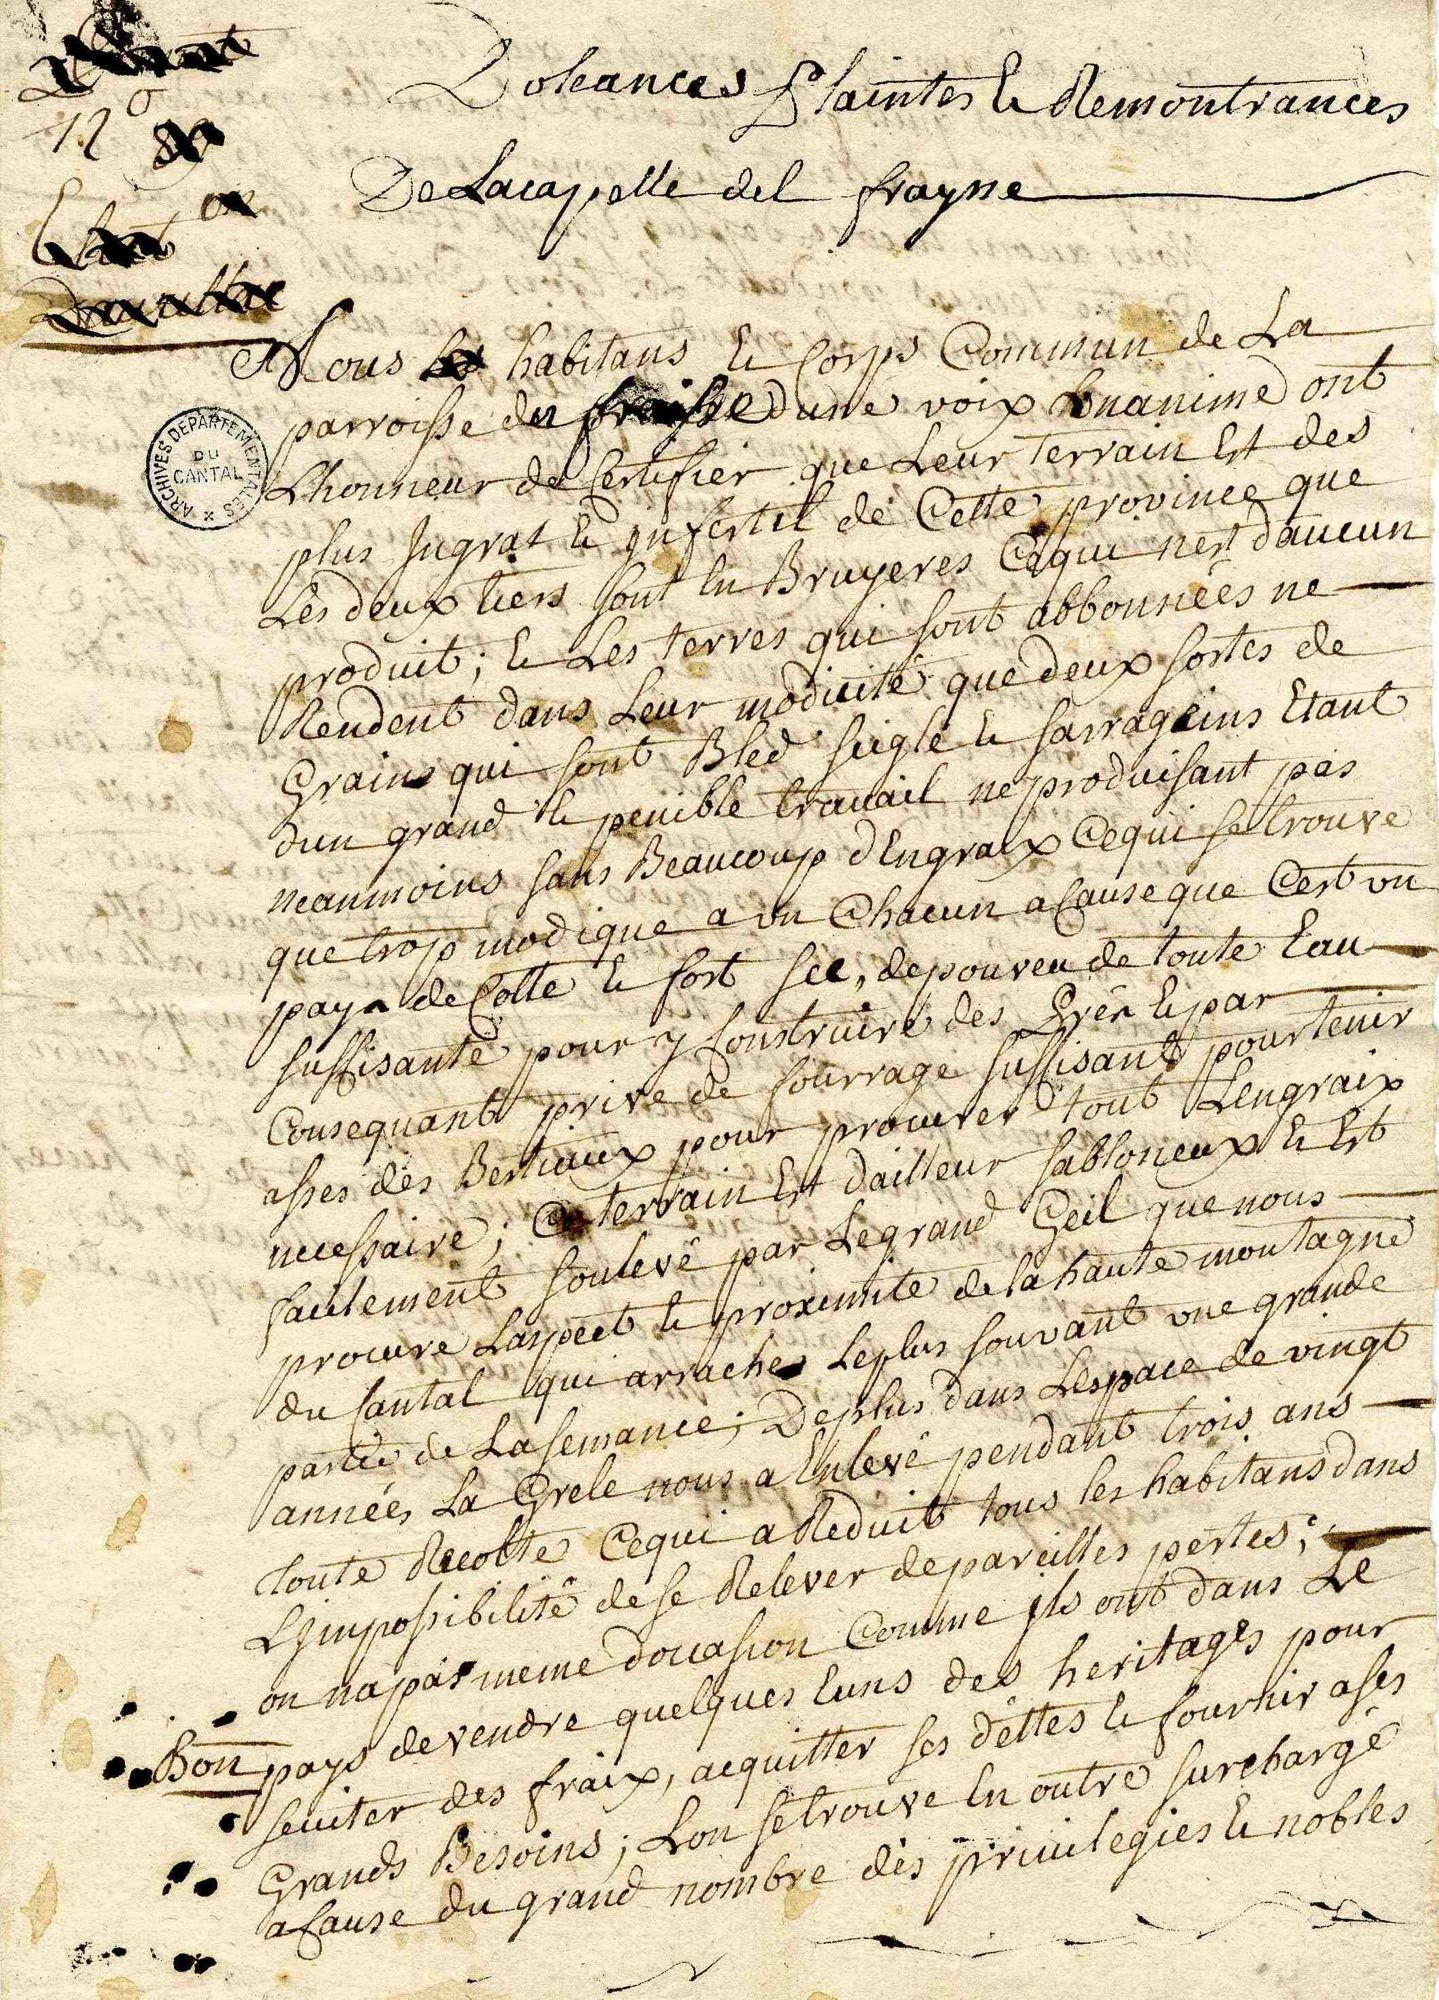 12°
Doleances Plaintes et Remontrances
De Lacapelle del fraysse
Nous habitans et Corps Commun de La
parroisse del fraisse dune voix unanime ont
Lhonneur de Certifier que Leur terrain Est des
plus Jngrat et jnfertil de Cette province que
Les deux tiers sont En Bruyeres Cequi nest daucun
produit; et Les terres qui sont abbonnées ne
Rendent dans Leur modicité que deux sortes de
Grains qui sont Bled seigle et sarragins Etant
dun grand et penible travail ne produisant pas
neanmoins sans Beaucoup dEngraix Cequi se trouve
que trop modique a un Chacun a Cause que Cest un
pays de Cotte et fort sec, depourveu de toute Eau
suffisante pour y Construire des Prés et par
Consequant privé de fourrage suffisant pour tenir
asses des Bestiaux pour procurer tout Lengraix
necessaire; Ce terrain Est dailleur sabloneux et Est
facilement soulevé par Le grand Geil que nous
procure Laspect et proximité de la haute montagne
du Cantal qui arrache Le plus souvant une grande
partie de La semance; De plus dans Lespace de vingt
années La Grele nous a Enlevé pendant trois ans
toute Recolte Cequi a Reduit tous les habitans dans
Ljmpossibilité de se Relever de pareilles pertes;
on na pas meme doccasion Comme jls ont dans Le
Bon pays de vendre quelques Euns des heritages pour
seviter des fraix, acquitter ses dettes et fournir a ses
Grands Besoins; Lon se trouve En outre surchargé
a Cause du grand nombre dès privilegiés et nobles
ARCHIVES DEPARTEMENTALES
DU
CANTAL